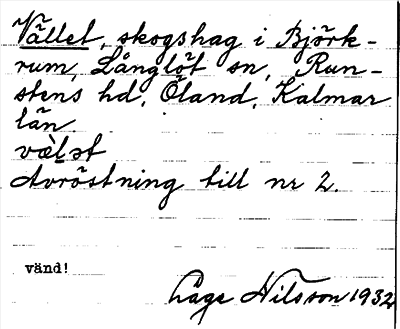 Vället, skogshag i Björk-
rum, Långlöt sn, Run-
stens hd, Öland, Kalmar
län.
vὲlət
Avröstning till nr 2.
vänd!
Åge Nilsson 1932